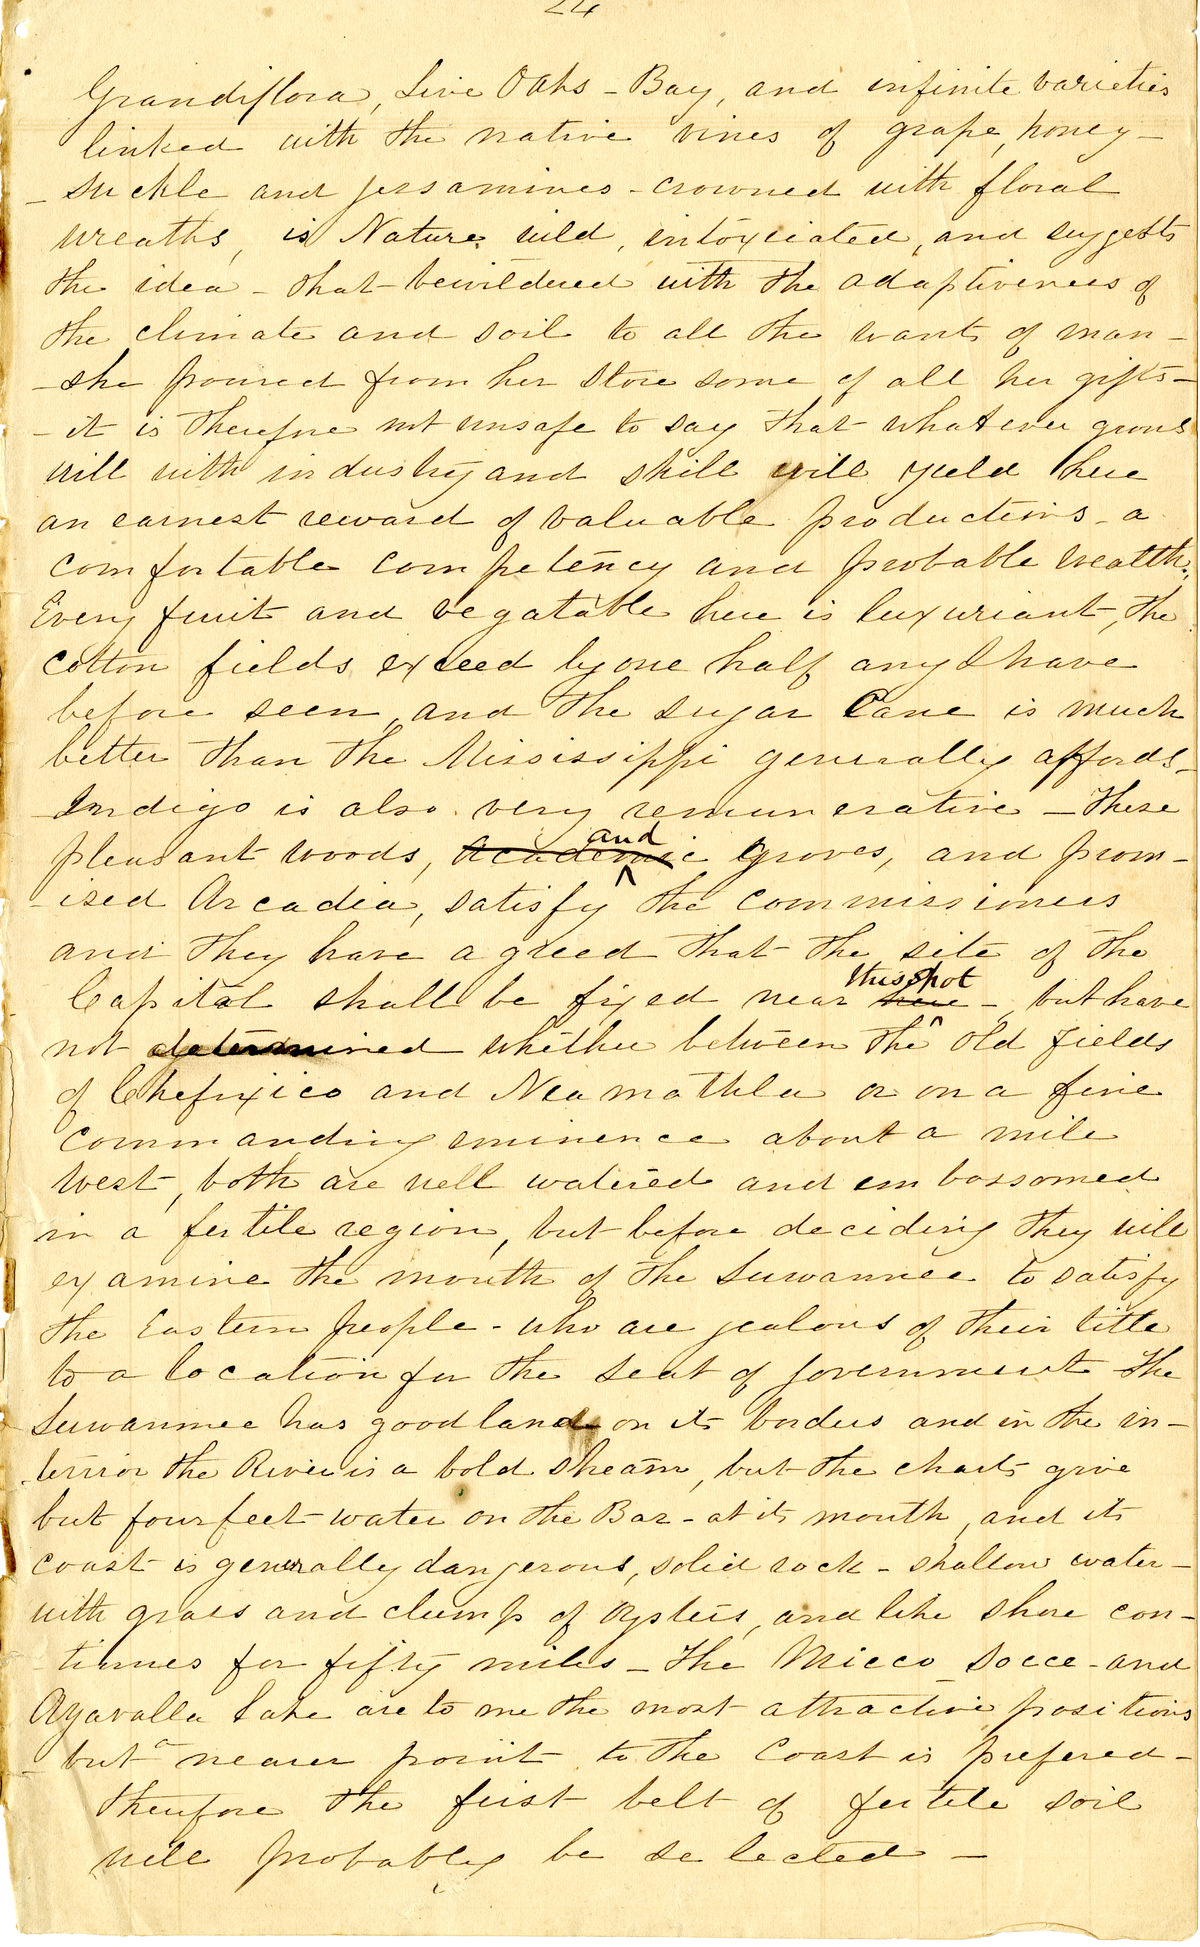 24
Grandiflora, Live Oaks - Bay, and infinite varieties
linked with the native vines of grape, honey-
- suckle and jessamines - crowned with floral
wreaths, is Nature wild, intoxicated, and suggests
the idea - that bewildered with the adaptiveness of
the climate and soil to all the wants of man -
- she poured from her store some of all her gifts -
- it is therefore not unsafe to say that whatever grows
will with industry and skill will yield here
an earnest reward of valuable productions - a
comfortable competency and probable wealth.
Every fruit and vegatable here is luxuriant, the
cotton fields exceed by one half any I have
before seen, and the sugar Cane is much
better than the Mississippi generally affords -
- Indigo is also very remunerative - These
pleasant woods, academic and groves, and prom-
- ised Arcadia, satisfy the commissioners
and they have agreed that the site of the
Capital shall be fixed near here this spot -, but have
not determined whether between the old fields
of Chefixico and Neamathla or on a fine
commanding eminence about a mile
West, both are well watered and embossomed
in a fertile region, but before deciding they will
examine the mouth of the Suwannee to satisfy
the Eastern people - who are jealous of their title
to a location for the seat of government The
Suwannee has good land on its borders and in the in-
- terior the River is a bold stream, but the charts give
but four feet water on the Bar - at its mouth, and its
coast is generally dangerous, solid rock - shallow water -
with grass and clumps of oysters, and like shore con-
- tinues for fifty miles - The Micco Socce - and
Ayavalla lake are to me the most attractive positions
- but a nearer point to the Coast is prefered -
therefore the first belt of fertile soil
will probably be selected -